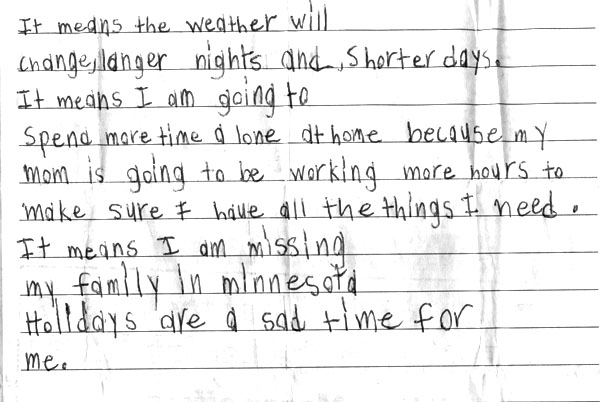 It means the weather will
change, langer nights and, Shorter days.
It means I am going to
spend more time a lone at home because my
mom is going to be working more hours to
make sure I have all the things I need.
It means I am missing
my family in minnesota
Holidays are a sad time for
me.